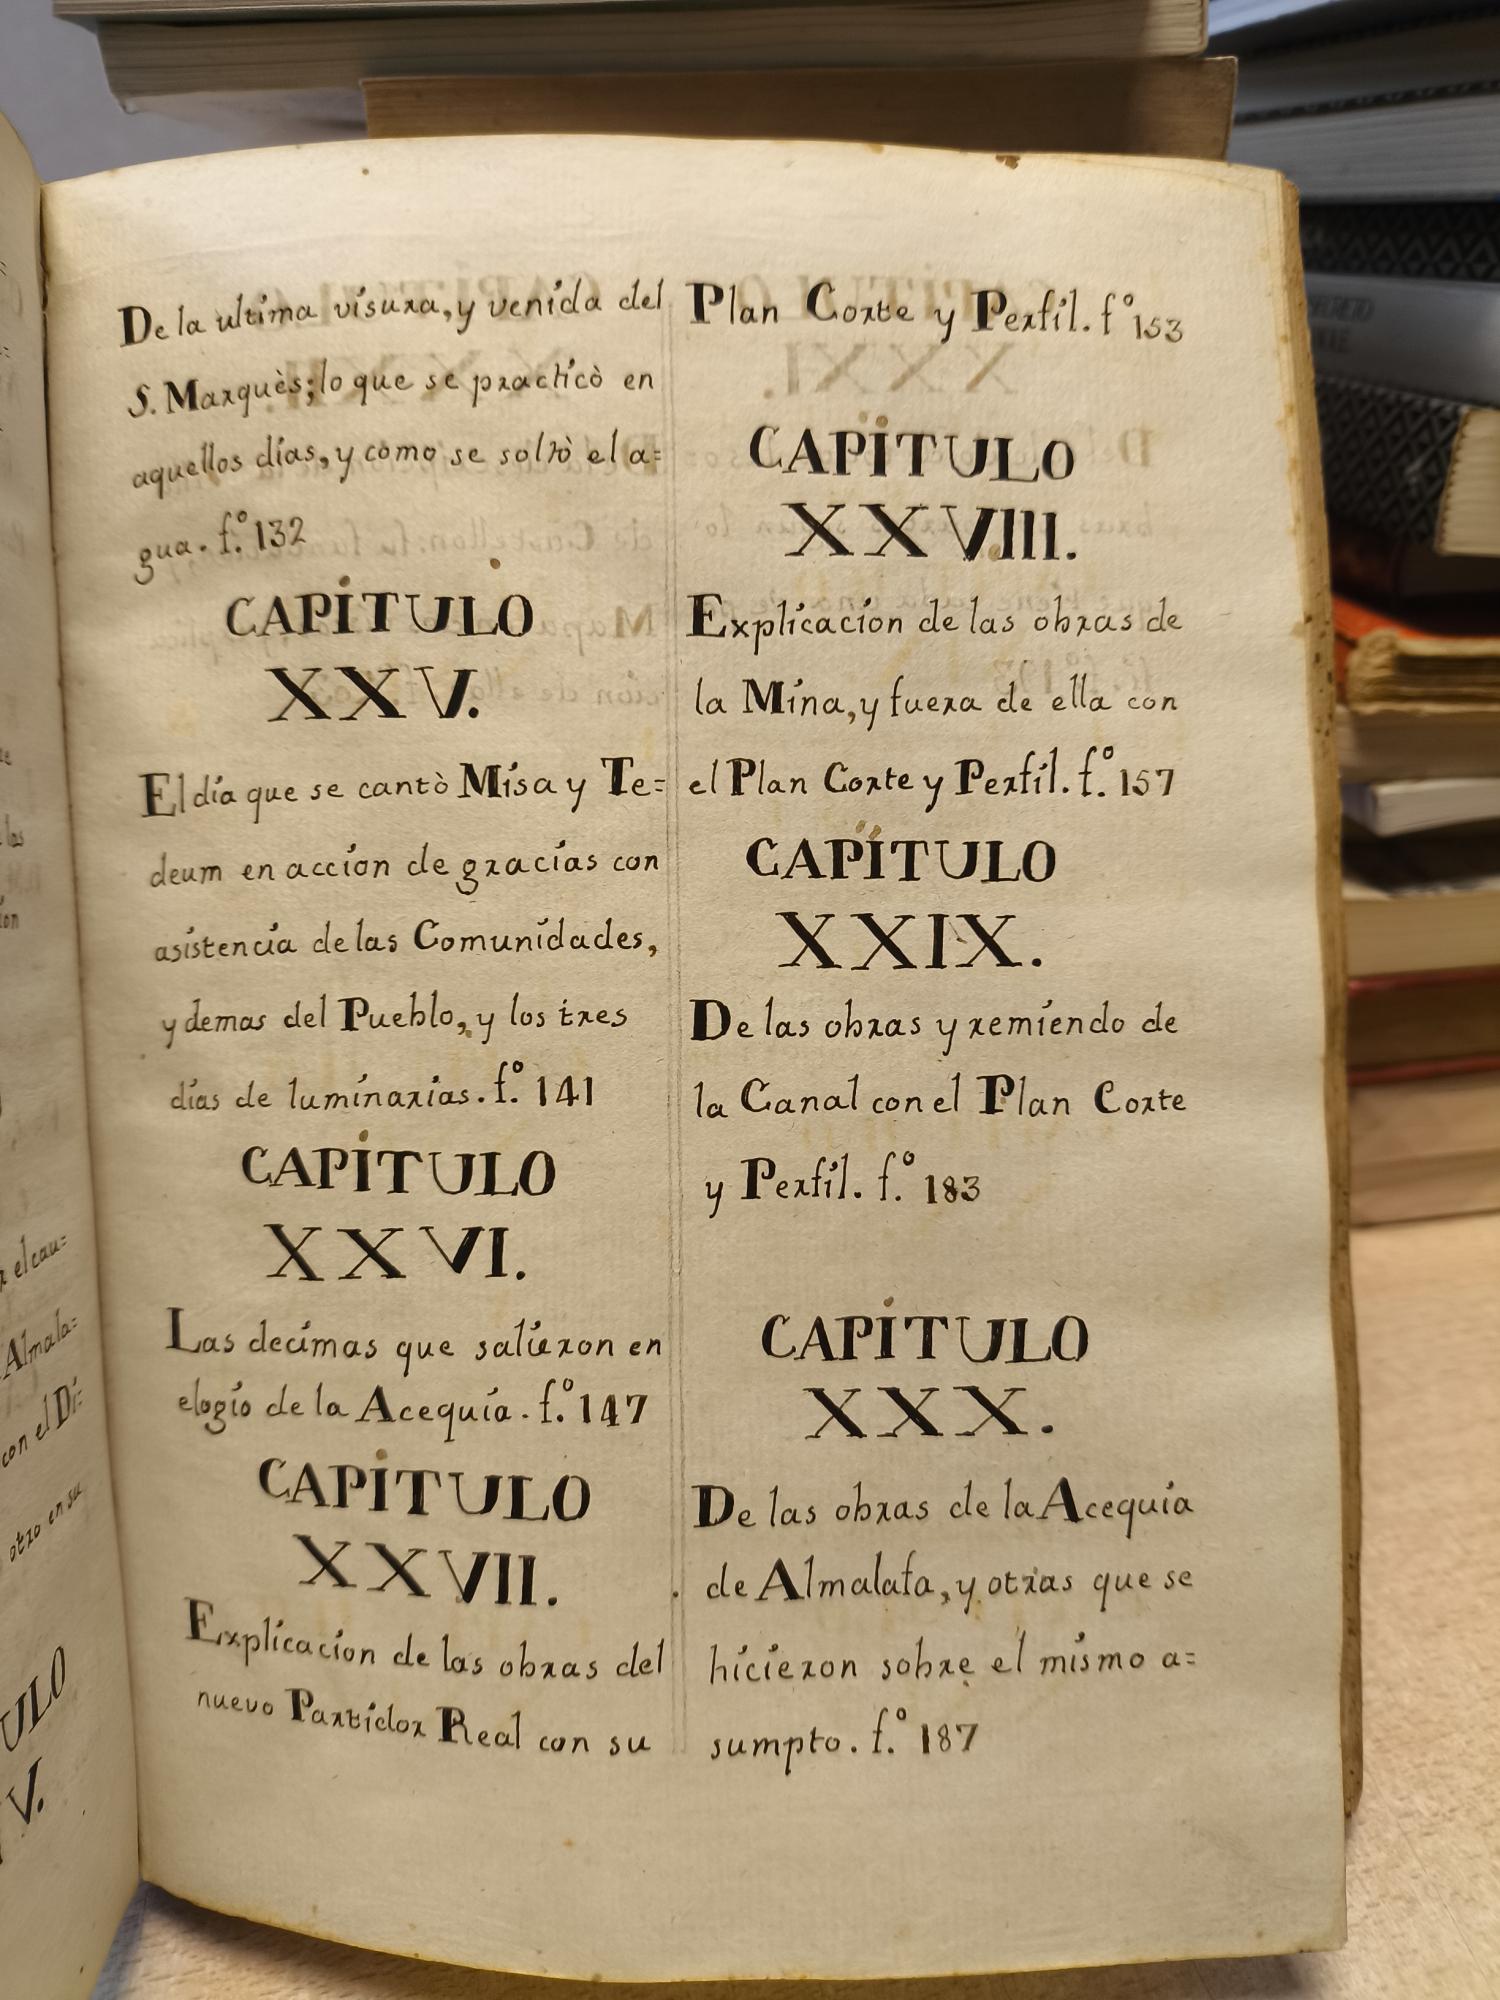 De la ultima visura, y venida del
S. Marquès; lo que se practicò en
aquellos dias, y como se soltò el a=
gua. f.º 132
CAPITULO
XXV.
El dia que se cantò Misa y Te=
deum en accion de gracias con
asistencia de las Comunidades,
y demas del Pueblo, y los tres
dias de luminarias. f.º 141
CAPITULO
XXVI.
Las decimas que salieron en
elogio de la Acequia. f.º 147
CAPITULO
XXVII.
Explicacion de las obras del
nuevo Partidor Real con su
Plan Corte y Perfil. fº 153
CAPITULO
XXVIII.
Explicacion de las obras de
la Mina, y fuera de ella con
el Plan Corte y Perfil. f.º 157
CAPITULO
XXIX.
De las obras y remiendo de
la Canal con el Plan Corte
y Perfil. f.º 183
CAPITULO
XXX.
De las obras de la Acequia
de Almalafa, y otras que se
hicieron sobre el mismo a=
sumpto. f.º 187
el cau=
Almala=
con el Di=
otro en su
ULO
V.